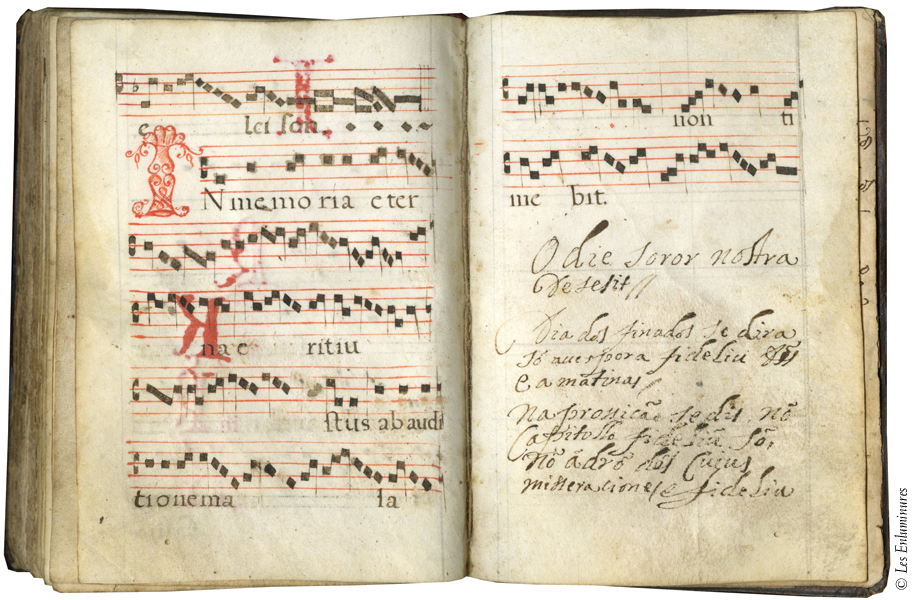 e lei son
IN memoria eter
na e ritiu
stus ab audi
tione ma la
non ti
me bit.
O die soror nostra
desesit
Dia dos finados se dira
so auespora fideliu
e a matinas
na prossicão se dis nõ
Capitollo fideliũ
nõ ádrõ dos Cuius
misseracione e fideliu
© Les Enluminures